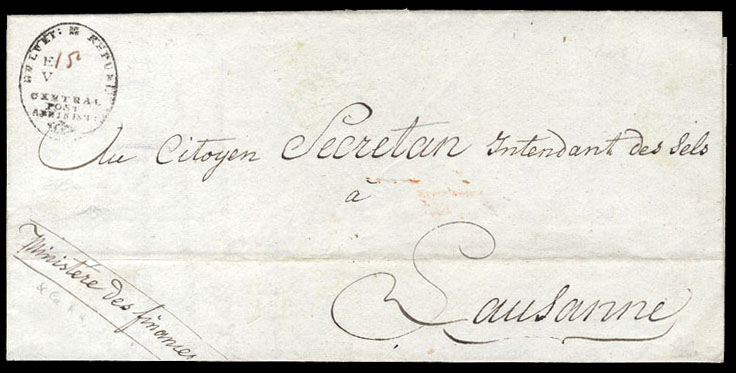 HELVET: REPUBL:
E 15
V
CENTRAL
POST
ADMINIST:
Au Citoyen Secretan Intendant des Sels
à
Lausanne
Ministere des finances